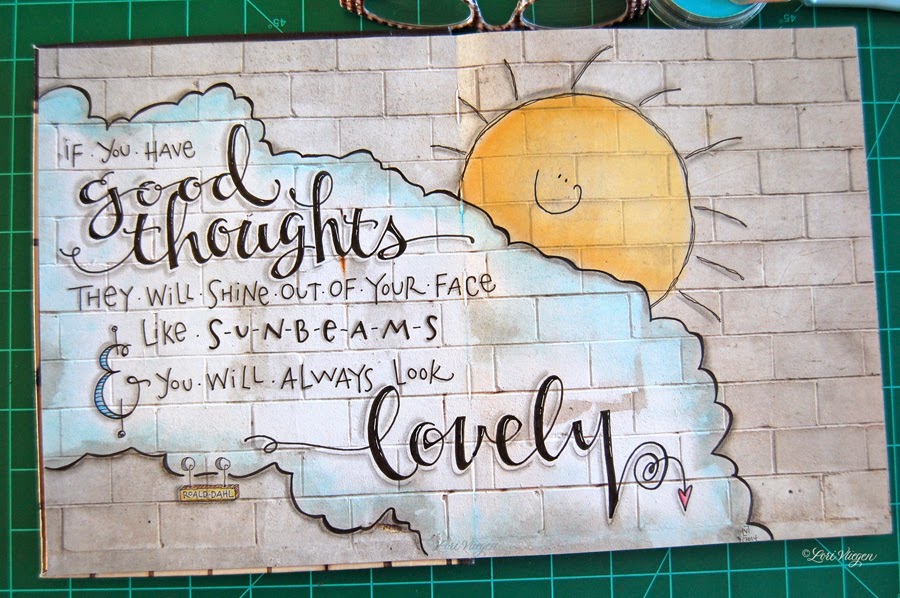 iF · YOU · HAVE
good
thoughts
THEY · WILL · SHINE · OUT · OF · YOUR · FACE
Like · S-U-N-B-E-A-M-S
& YOU · WILL · ALWAYS LOOK
lovely
ROALD · DAHL
Lori Vliegen
©Lori Vliegen
45°
45°